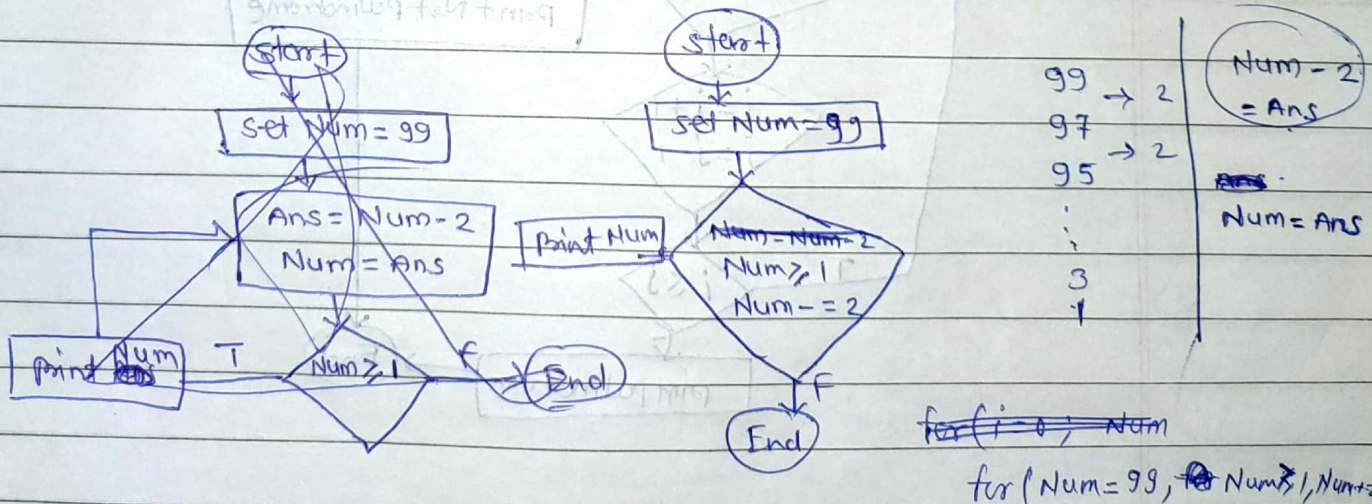 Start
Set Num = 99
Ans = Num - 2
Num = Ans
Num ≥ 1
T
Print Num
F
End
Start
Set Num = 99
Print Num
Num = Num - 2
Num ≥ 1
Num -= 2
F
End
99 → 2
97 → 2
95
⋮
3
1
Num - 2
= Ans
Num = Ans
for (i = 0; Num
for (Num = 99, Num ≥ 1, Num